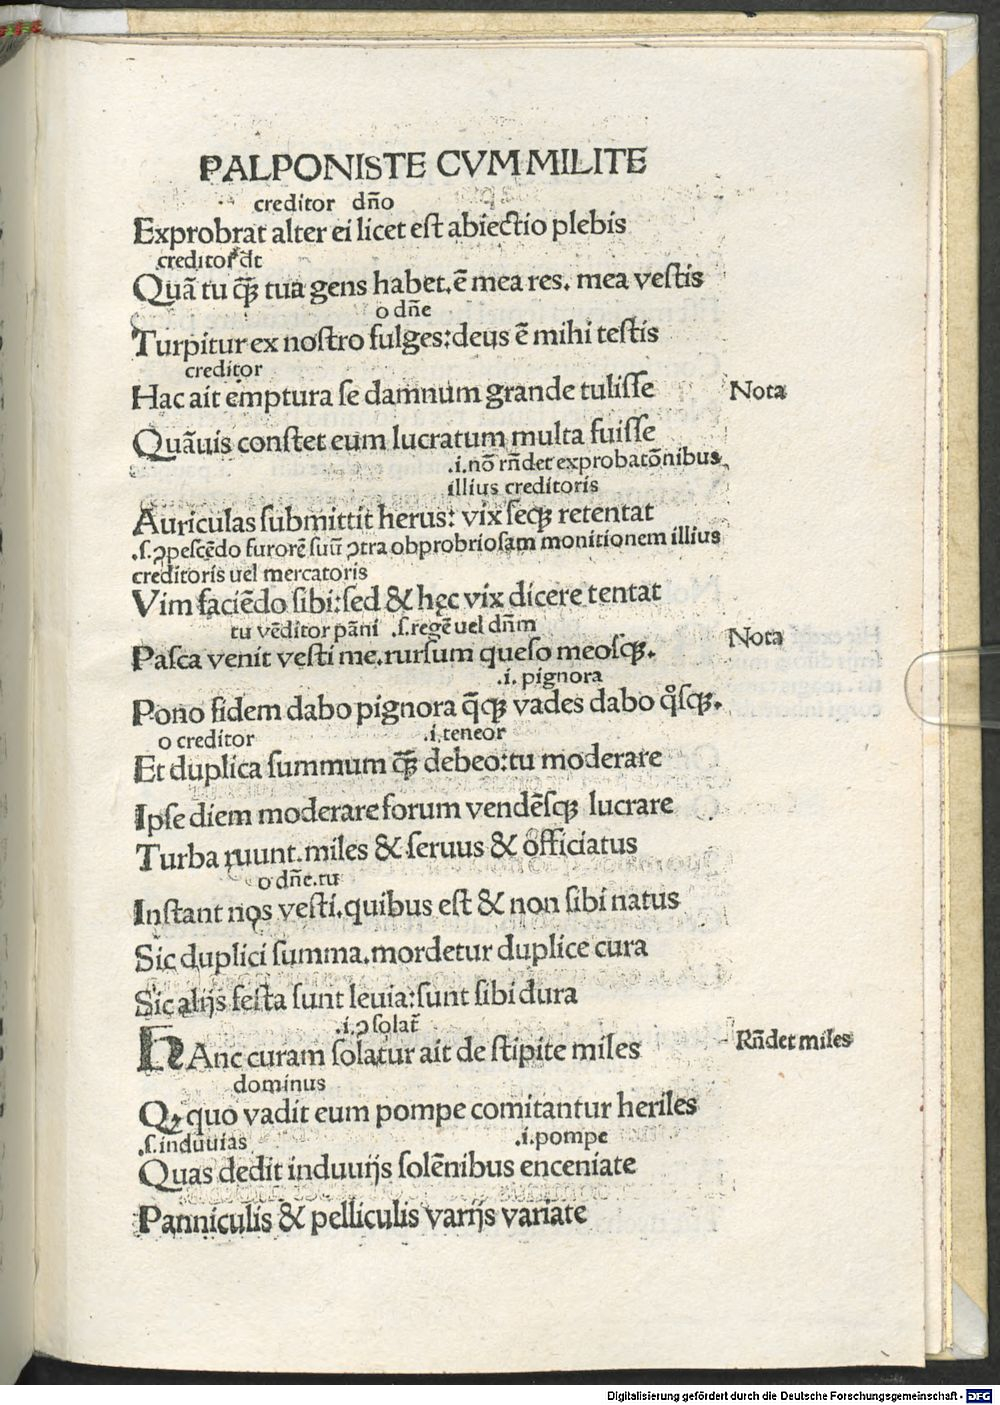 PALPONISTE CVM MILITE
creditor dño
Exprobrat alter ei licet est abiectio plebis
creditor dt
Quã tu q̃ꝫ tua gens habet. ẽ mea res. mea vestis
o dñe
Turpitur ex nostro fulges: deus ẽ mihi testis
creditor
Hac ait emptura se damnum grande tulisse
Nota
Quãuis constet eum lucratum multa fuisse
.i. nõ rñdet exprobatõnibus
illius creditoris
Auriculas submittit herus: vix seqꝫ retentat
.ſ. ↄpescẽdo furorẽ suũ ↄtra obprobriosam monitionem illius
creditoris uel mercatoris
Vim faciẽdo sibi: sed & hęc vix dicere tentat
tu vẽditor pãni .ſ. regẽ uel dñm
Pasca venit vesti me. rursum queso meosqꝫ.
Nota
.i. pignora
Pono fidem dabo pignora q̃qꝫ vades dabo qͦsqꝫ.
o creditor .i. teneor
Et duplica summum q̃ꝫ debeo: tu moderare
Ipse diem moderare forum vendẽsqꝫ lucrare
Turba ruunt. miles & seruus & officiatus
o dñe. tu
Instant nos vesti. quibus est & non sibi natus
Sic duplici summa. mordetur duplice cura
Sic alijs festa sunt leuia: sunt sibi dura
.i. ↄsolat̃
HAnc curam solatur ait de stipite miles
Rñdet miles
dominus
Qꝫ quo vadit eum pompe comitantur heriles
.ſ. induuias .i. pompe
Quas dedit induuijs solẽnibus enceniate
Panniculis & pelliculis varijs variate
Digitalisierung gefördert durch die Deutsche Forschungsgemeinschaft - DFG